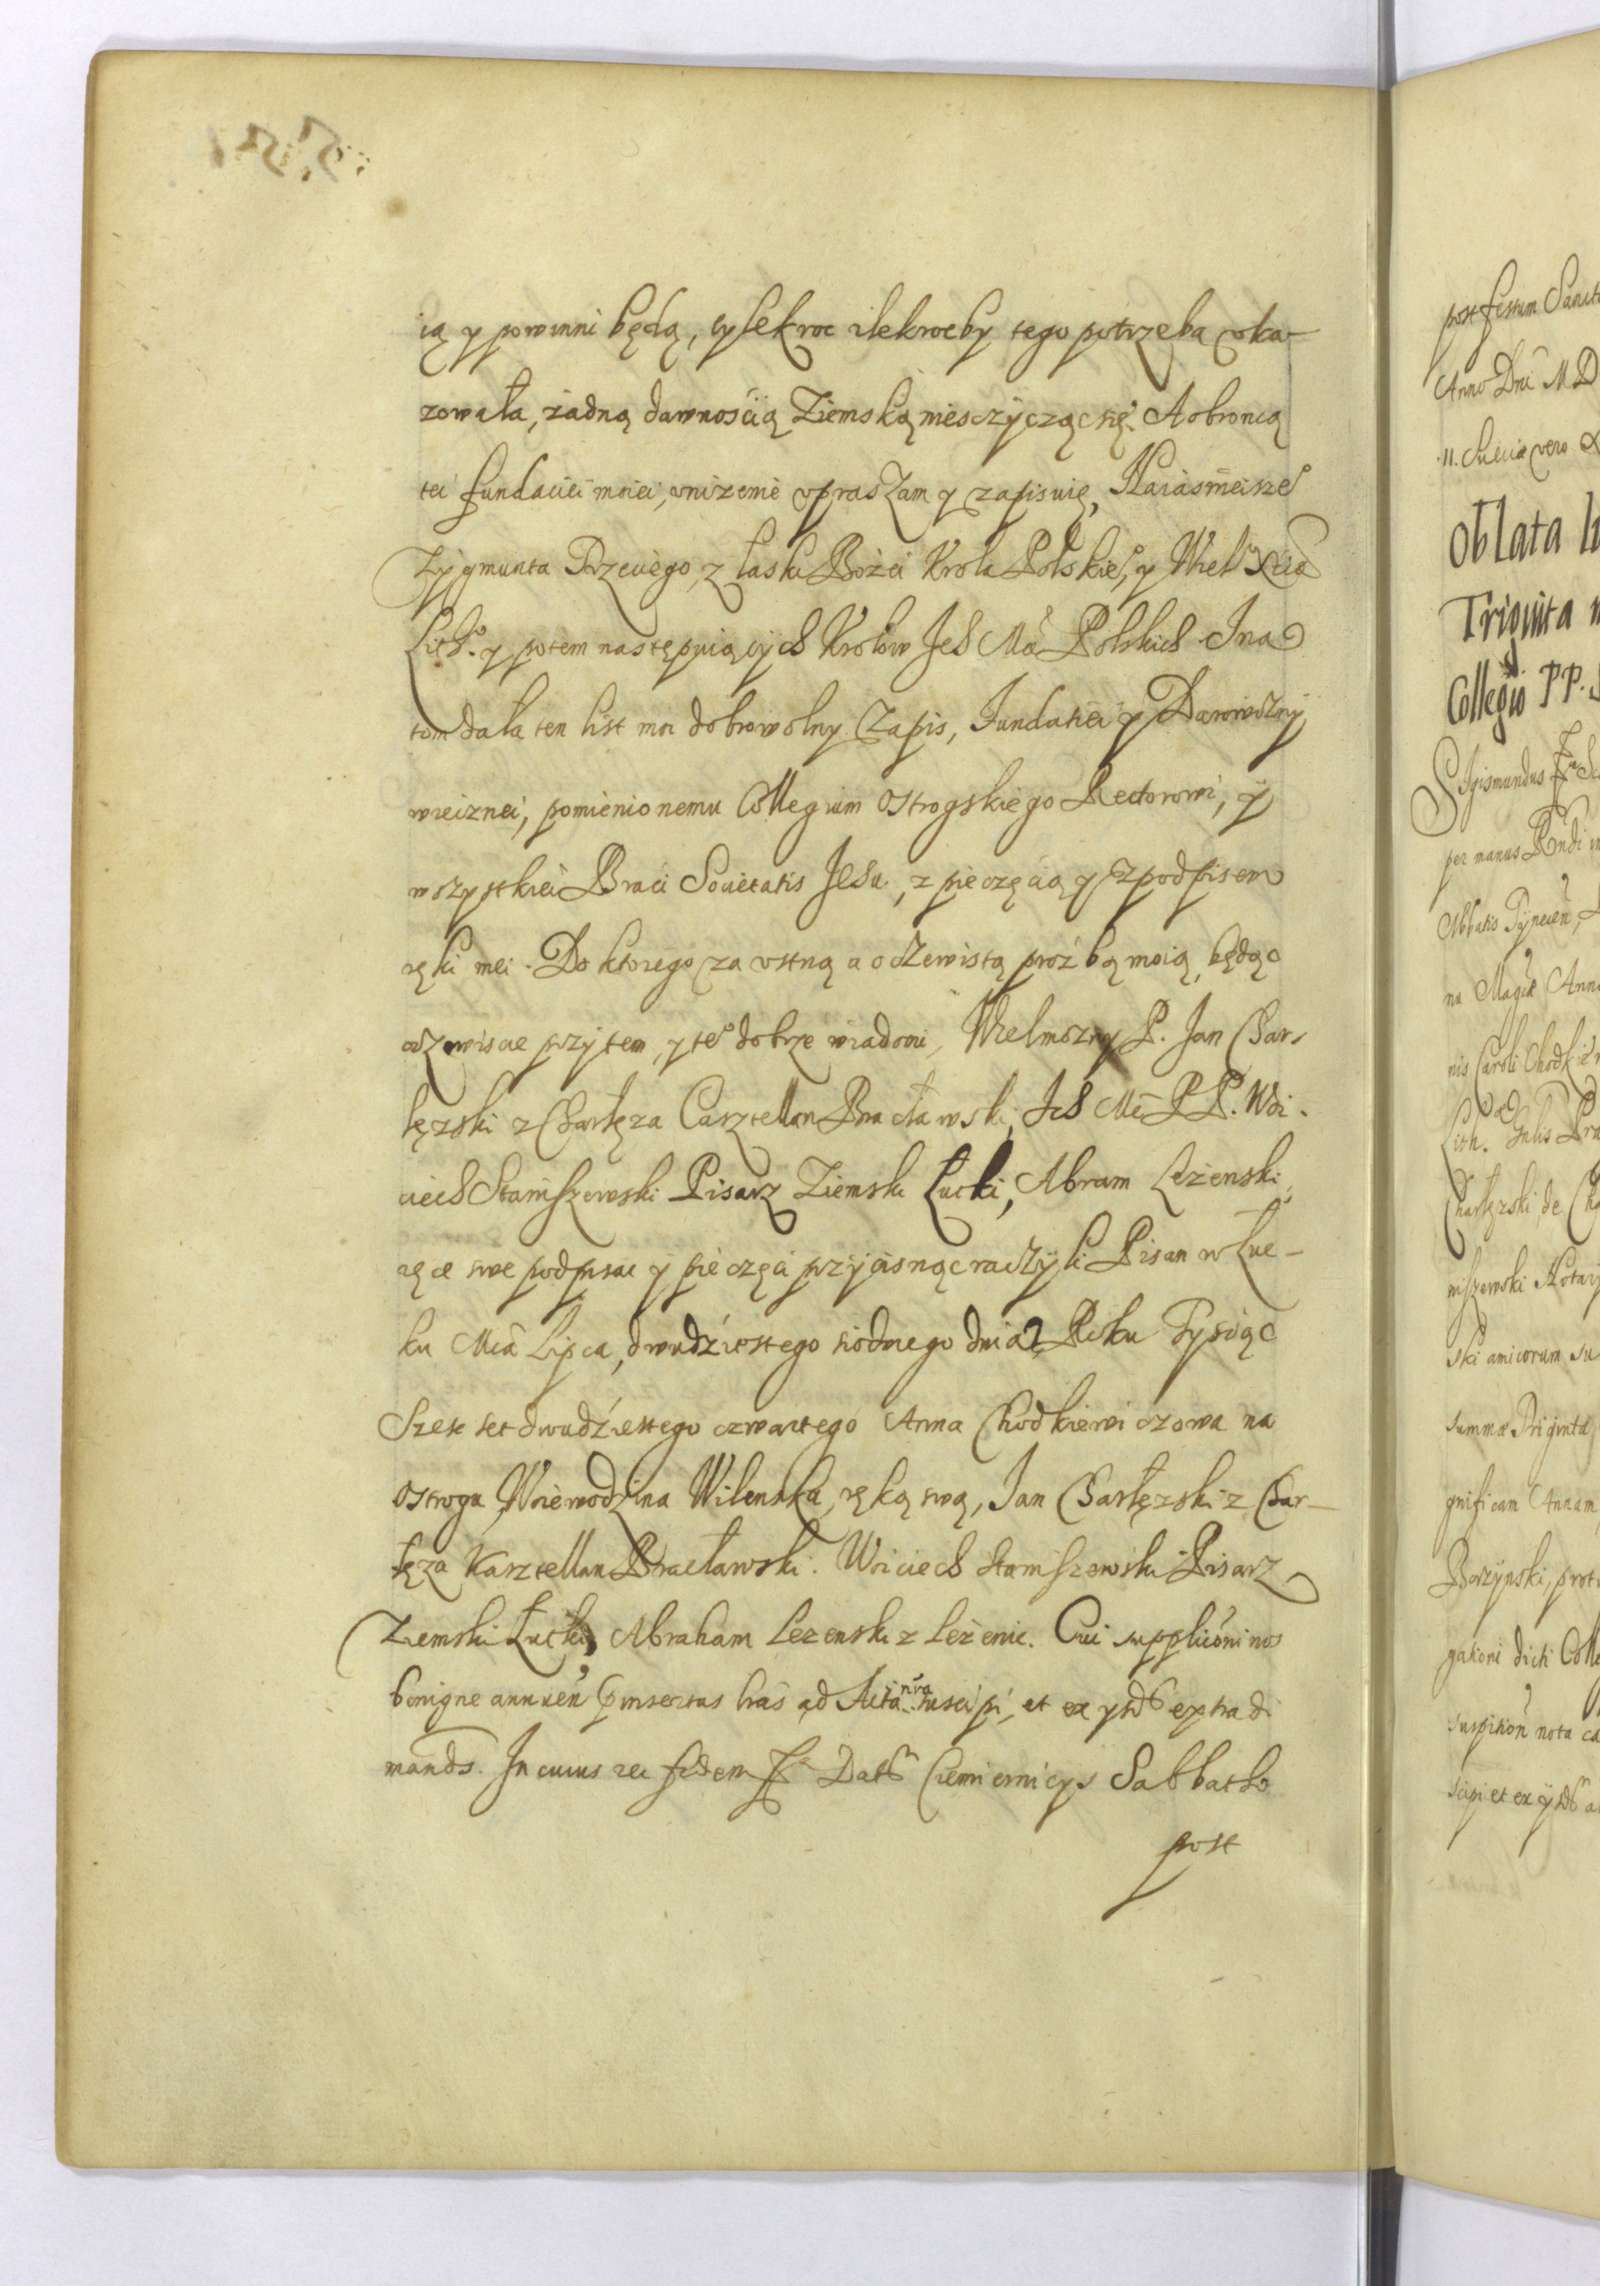 ią y powinni będą, tylekroc ilekrocby tego potrzeba oka-
zowała, żadną dawnoscią Ziemską niesczyczącsię. A obroncą
tei fundaciei moiei, unizenie upraszam y zapisuię, Naiasneisze°
Zygmunta Trzeciego, z łaski Bożei Krola Polskie°, y Wiel° Xcia
Lith°. y potem następuiących Krolow Ich Mci Polskich. Ina
tom dała ten list moi dobrowolny Zapis, Fundatiei y Darowizny
wieiznei, pomienionemu Collegium Ostrogskiego Rectorowi, y
wszystkiei Braci Societatis Jesu, z pieczęcią y z podpisem
ręki mei. Do ktorego za ustną a oczewistą proźbą moią, będąc
oczewiscie przytem, y te° dobrze wiadomi, Wielmozny P. Jan Char-
łęzski z Charłęza Casztellan Bracławski, Ich Mc PP. Woi-
ciech Staniszewski Pisarz Ziemski Łucki, Abram Leżenski,
ręce swe podpisac y pieczęci przycisnąc raczyli Pisan w Łuc-
ku Mca Lipca, dwudźiestego siodmego dnia Roku Tysiąc
Szesc set dwudźiestego czwartego Anna Chodkiewiczowa na
Ostrogu Woiewodzina Wilenska, ręką swą, Jan Charłęzski z Char-
łęza Kasztellan Bracławski. Woiciech Staniszewski Pisarz
Ziemski Łucki, Abraham Lezenski z Leżenic. Cui supplicōni nos
benigne annuen̄ pinsertas lras ad Acta nr̄a suscipi, et ex ysdb extradi
mandᷤ. In cuius rei fidem Datb Ciemiernicys Sabbatho
post
post festum Sancti
Anno Dni M D
Oblata
Triginta
Collegio PP.
Sigismundus
per manus Rndi
Abbatis Tynecen̄,
na Magcæ Anna
nis Caroli Chodkie
Lith.
Charłęzski, de Cha
niszewski Notary
ski amicorum su
summæ Triginta
gnificam Annam
Borzynski, prot
gationi dicti Colle
suspition̄ nota ca
scipi et ex ysdb a